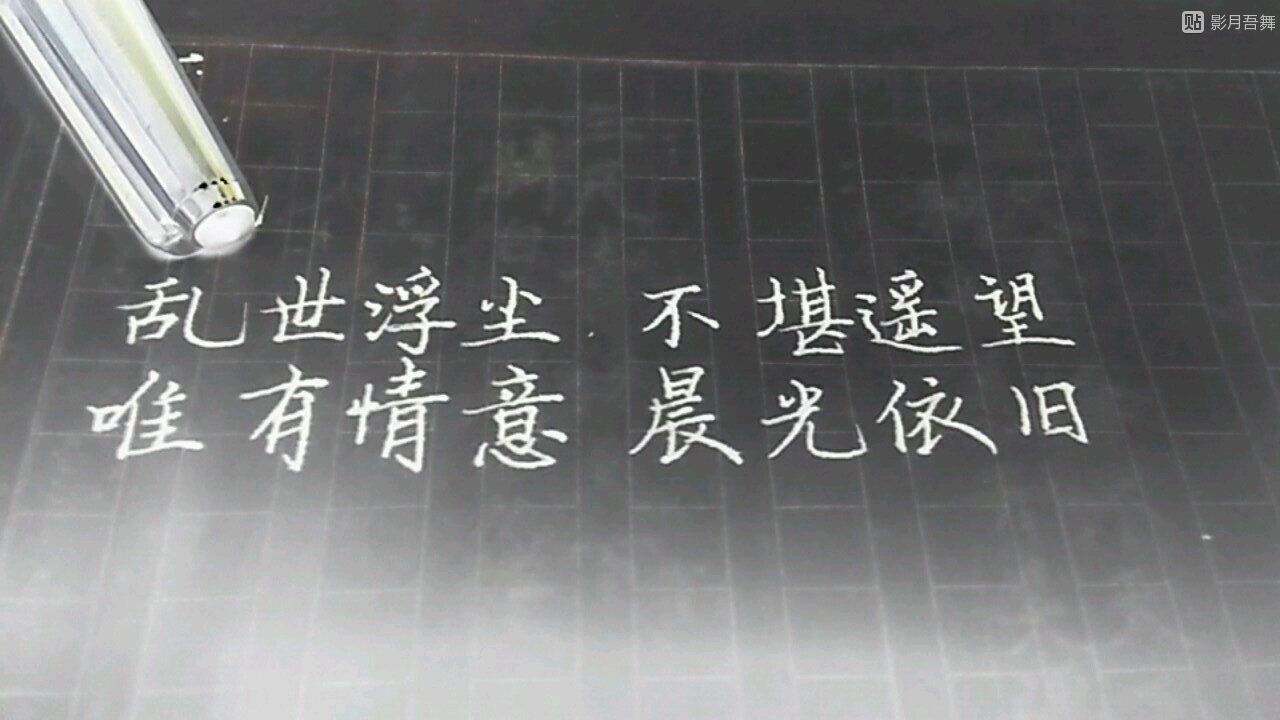 贴 影月吾舞
乱世浮尘 不堪遥望
唯有情意 晨光依旧